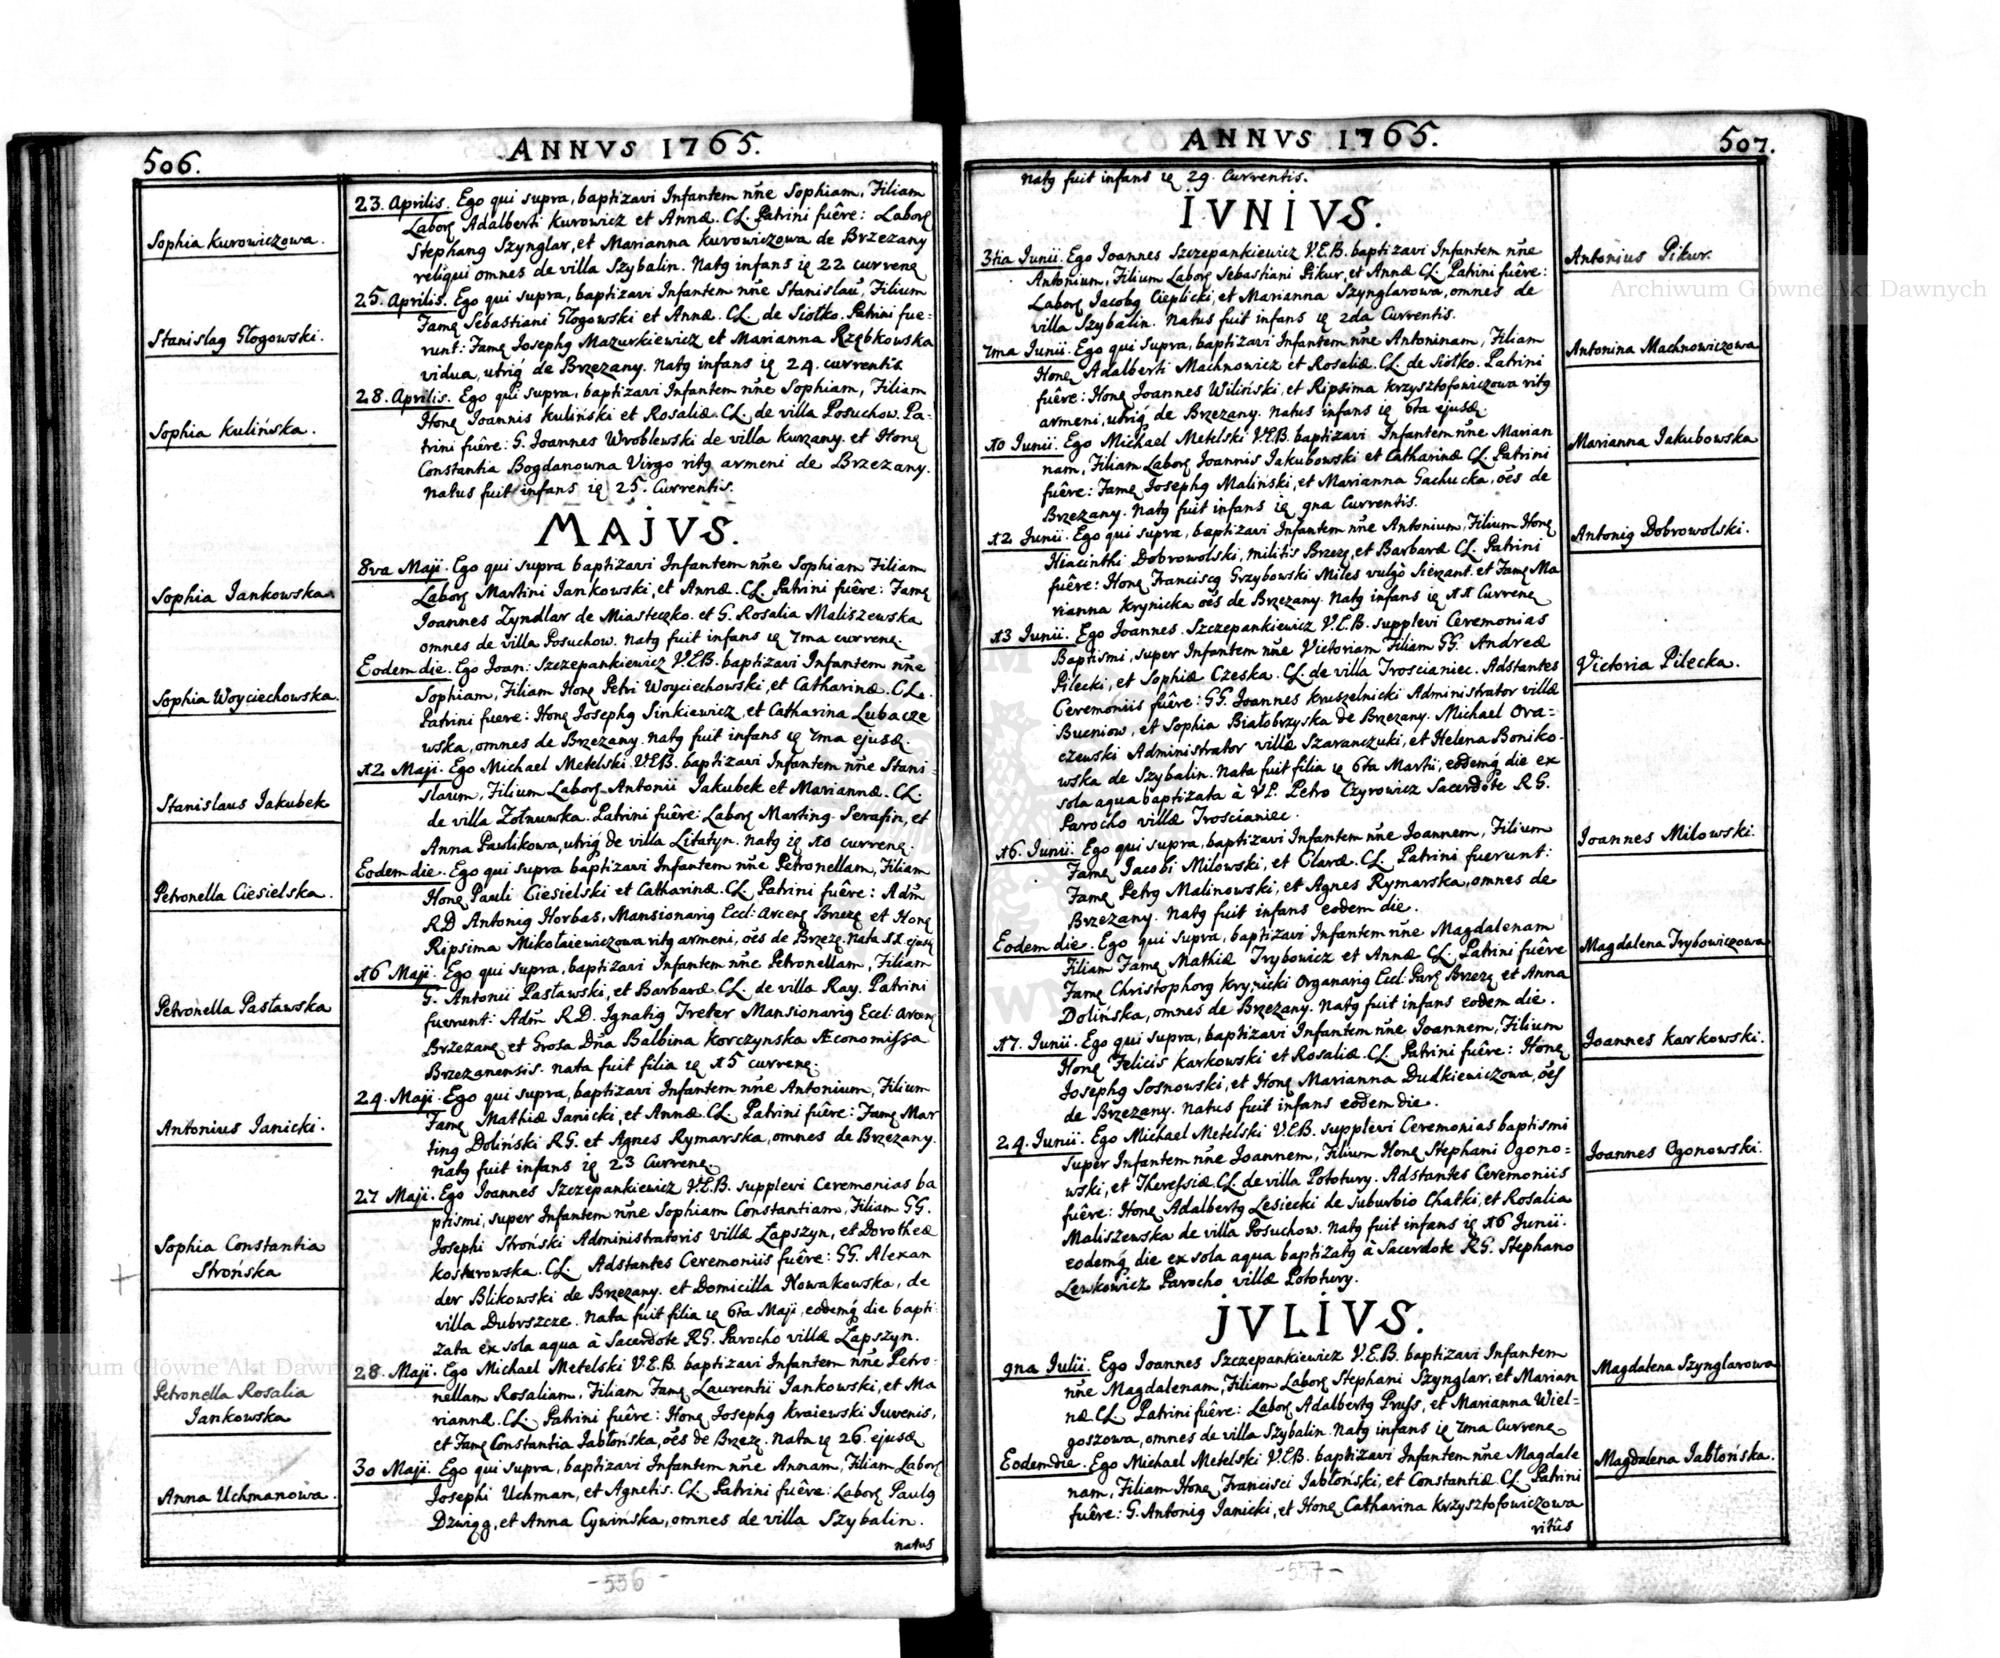 506.
ANNVS 1765.
Sophia Kurowiczowa.
Stanislaꝯ Głogowski.
Sophia Kulińska.
Sophia Jankowska
Sophia Woyciechowska.
Stanislaus Jakubek
Petronella Ciesielska.
Petronella Pasławska
Antonius Janicki.
Sophia Constantia
Strońska
Petronella Rosalia
Jankowska
Anna Uchmanowa.
23. Aprilis. Ego qui supra, baptizavi Infantem nñe Sophiam, Filiam
Laborꝭ Adalberti Kurowicz et Annæ. CL. Patrini fuêre: Laborꝭ
Stephanꝯ Szynglar, et Marianna Kurowiczowa de Brzezany
reliqui omnes de villa Szybalin. Natꝯ infans ię 22 currenꝭ
25. Aprilis. Ego qui supra, baptizavi Infantem nñe Stanislaũ, Filium
Famꝭ Sebastiani Głogowski et Annæ. CL. de Siołko. Patrini fue=
runt: Famꝭ Josephꝯ Mazurkiewicz et Marianna Rząbkowska
vidua, utriꝗ de Brzezany. Natꝯ infans ię 24. currentis
28. Aprilis. Ego qui supra, baptizavi Infantem nñe Sophiam, Filiam
Honꝭ Joannis Kuliński et Rosaliæ. CL. de villa Posuchow. Pa=
trini fuêre: G. Joannes Wroblewski de villa Kurzany. et Honꝭ
Constantia Bogdanowna Virgo ritꝯ armeni de Brzezany.
Natus fuit infans ię 25. Currentis.
MAJVS.
8va Maji. Ego qui supra baptizavi Infantem nñe Sophiam Filiam
Laborꝭ Martini Jankowski, et Annæ. CL. Patrini fuêre: Famꝭ
Joannes Zyndlar de Miasteczko. et G. Rosalia Maliszewska
omnes de villa Posuchow. Natꝯ fuit infans ię 7ma currenꝭ.
Eodem die. Ego Joan: Szczepankiewicz V.E.B. baptizavi Infantem nñe
Sophiam, Filiam Honꝭ Petri Woyciechowski, et Catharinæ. CL.
Patrini fuere: Honꝭ Josephꝯ Sinkiewicz, et Catharina Lubacze
wska, omnes de Brzezany. Natꝯ fuit infans ię 7ma ejusꝭ.
12 Maji. Ego Michael Metelski. V.E.B. baptizavi Infantem nñe Stani=
slaum, Filium Laborꝭ Antonii Jakubek et Mariannæ. CL.
de villa Żołnuwka. Patrini fuêre: Laborꝭ Martinꝯ Serafin, et
Anna Pawlikowa, utriꝗ de villa Litatyn. Natꝯ ię 10 currenꝭ.
Eodem die. Ego qui supra baptizavi Infantem nñe Petronellam, Filiam
Honꝭ Pauli Ciesielski et Catharinæ. CL. Patrini fuêre: Adm̃
RD Antoniꝯ Horbas, Mansionariꝯ Eccl: Arcenꝭ Brzezꝭ et Honꝭ
Ripsima Mikołaiewiczowa ritꝯ armeni, oẽs de Brzezꝭ. Nata 11 ejusꝭ
16 Maji. Ego qui supra, baptizavi Infantem nñe Petronellam, Filiam
G. Antonii Pasławski, et Barbaræ. CL. de villa Ray. Patrini
fuerunt: Adm̃ R.D. Ignatiꝯ Treter Mansionariꝯ Eccl: Arcenꝭ
Brzezanꝭ et Grosa Dña Balbina Korczynska Æconomissa
Brzezanensis. Nata fuit filia ię 15 currenꝭ.
24. Maji. Ego qui supra, baptizavi Infantem nñe Antonium, Filium
Famꝭ Mathiæ Janicki, et Annæ. CL. Patrini fuêre: Famꝭ Mar
tinꝯ Doliński RG. et Agnes Rymarska, omnes de Brzezany.
Natꝯ fuit infans ię 23 Currenꝭ.
27 Maji. Ego Joannes Szczepankiewicz V.E.B. supplevi Ceremonias ba
ptismi, super Infantem nñe Sophiam Constantiam, Filiam GG.
Josephi Stroński Administratoris villæ Lapszyn, et Dorotheæ
Kosterowska. CL. Adstantes Ceremoniis fuêre: GG. Alexan
der Blikowski de Brzezany. et Domicilla Nowakowska, de
villa Dubrszcze. Nata fuit filia ię 6ta Maji, eodemꝗ die bapti
zata ex sola aqua à Sacerdote RG. Parocho villæ Lapszyn.
28. Maji. Ego Michael Metelski V.E.B. baptizavi Infantem nñe Petro=
nellam Rosaliam, Filiam Famꝭ Laurentii Jankowski, et Ma
riannæ. CL. Patrini fuêre: Honꝭ Josephꝯ Kraiewski Iuvenis,
et Famꝭ Constantia Jabłońska, oẽs de Brzezꝭ. Nata ię 26. ejusꝭ
30 Maji. Ego qui supra, baptizavi Infantem nñe Annam, Filiam Laborꝭ
Josephi Uchman, et Agnetis. CL. Patrini fuêre: Laborꝭ Paulꝯ
Dzwigꝯ, et Anna Cywińska, omnes de villa Szybalin.
natus
-556-
ANNVS 1765.
507.
Natꝯ fuit infans ię 29. Currentis.
IVNIVS.
3tia Junii. Ego Joannes Szczepankiewicz V.E.B. baptizavi Infantem nñe
Antonium, Filium Laborꝭ Sebastiani Pikur, et Annæ CL. Patrini fuêre:
Laborꝭ Jacobꝯ Cieplicki, et Marianna Szynglarowa, omnes de
villa Szybalin. Natus fuit infans ię 2da Currentis.
7ma Junii. Ego qui supra, baptizavi Infantem nñe Antoninam, Filiam
Honꝭ Adalberti Machnowicz et Rosaliæ. CL. de Siołko. Patrini
fuêre: Honꝭ Joannes Wiliński, et Ripsima Krzysztofowiczowa ritꝯ
armeni, utriꝗ de Brzezany. Natus infans ię 6ta ejusꝭ.
10 Junii. Ego Michael Metelski V.E.B. baptizavi Infantem nñe Marian
nam, Filiam Laborꝭ Joannis Jakubowski et Catharinæ CL. Patrini
fuêre: Famꝭ Josephꝯ Maliński, et Marianna Gachucka, oẽs de
Brzezany. Natꝯ fuit infans ię 9na Currentis.
12 Junii. Ego qui supra, baptizavi Infantem nñe Antonium, Filium Honꝭ
Hiacinthi Dobrowolski, militis Brzezꝭ, et Barbaræ CL. Patrini
fuêre: Honꝭ Franciscꝯ Grzybowski Miles vulgò Sierzant. et Famꝭ Ma
rianna Krynicka oẽs de Brzezany. Natꝯ infans ię 11 Currenꝭ
13 Junii. Ego Joannes. Szczepankiewicz V.E.B. supplevi Ceremonias
Baptismi, super Infantem nñe Victoriam Filiam GG. Andreæ
Pilecki, et Sophiæ Czeska. CL. de villa Troscianiec. Adstantes
Ceremoniis fuêre: GG. Joannes Kruszelnicki Administrator villæ
Bucniow, et Sophia Białobrzyska de Brzezany. Michael Ora=
czewski Administrator villæ Szaranczuki, et Helena Boniko=
wska de Szybalin. Nata fuit filia ię 6ta Martii, eodemꝗ die ex
sola aqua baptizata à VP. Petro Czyrowicz Sacerdote RG.
Parocho villæ Trościaniec.
16. Junii. Ego qui supra, baptizavi Infantem nñe Joannem, Filium
Famꝭ Jacobi Milowski, et Claræ. CL. Patrini fuerunt:
Famꝭ Petrꝯ Malinowski, et Agnes Rymarska, omnes de
Brzezany. Natꝯ fuit infans eodem die.
Eodem die. Ego qui supra, baptizavi Infantem nñe Magdalenam
Filiam Famꝭ Mathiæ Trybowicz et Annæ CL. Patrini fuêre
Famꝭ Christophorꝯ Krynicki Organariꝯ Eccl: Parꝭ Brzezꝭ et Anna
Dolińska, omnes de Brzezany. Natꝯ fuit infans eodem die.
17. Junii. Ego qui supra, baptizavi Infantem nñe Joannem, Filium
Honꝭ Felicis Karkowski et Rosaliæ. CL. Patrini fuêre: Honꝭ
Josephꝯ Sosnowski, et Honꝭ Marianna Dudkiewiczowa, oẽs
de Brzezany. Natus fuit infans eodem die.
24. Junii. Ego Michael Metelski V.E.B. supplevi Ceremonias baptismi
super Infantem nñe Joannem, Filium Honꝭ Stephani Ogono=
wski, et Theressiæ. CL. de villa Potutury. Adstantes Ceremoniis
fuêre: Honꝭ Adalbertꝯ Lesiecki de suburbio Chatki, et Rosalia
Maliszewska de villa Posuchow. Natꝯ fuit infans ię 16 Junii.
eodemꝗ die ex sola aqua baptizatꝯ à Sacerdote RG. Stephano
Lewkowicz Parocho villæ Potutury.
JVLIVS.
9na Julii. Ego Joannes Szczepankiewicz V.E.B. baptizavi Infantem
nñe Magdalenam, Filiam Laborꝭ Stephani Szynglar, et Marian
næ CL. Patrini fuêre: Laborꝭ Adalbertꝯ Pruss, et Marianna Wiel=
goszowa, omnes de villa Szybalin. Natꝯ infans ię 7ma Currenꝭ
Eodem die. Ego Michael Metelski V.E.B. baptizavi Infantem nñe Magdale
nam, Filiam Honꝭ Francisci Jabłoński, et Constantiæ CL. Patrini
fuêre: G. Antoniꝯ Janicki, et Honꝭ Catharina Krzysztofowiczowa
ritûs
Antonius Pikur.
Antonina Machnowiczowa
Marianna Jakubowska
Antoniꝯ Dobrowolski.
Victoria Pilecka.
Joannes Milowski.
Magdalena Trybowiczowa
Joannes Karkowski.
Joannes Ogonowski.
Magdalena Szynglarowa
Magdalena Jabłońska.
-557-
Archiwum Główne Akt Dawnych
Archiwum Główne Akt Dawnych